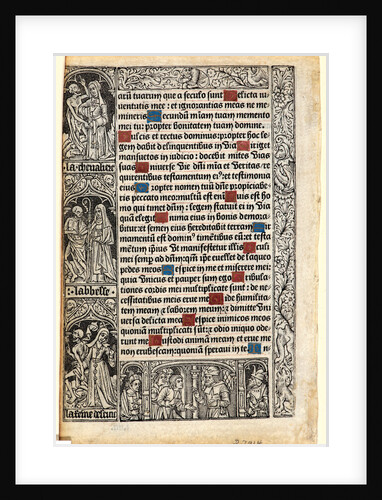 arũ tuarum que a seculo sunt Delicta iu-
uentutis mee : et ignorantias meas ne me-
mineris Secundũ m̃iam tuam memento
mei tu: propter bonitatem tuam domine.
Dulcis et rectus dominus: propter hoc le-
gem dabit delinquentibus in via Diriget
mansuetos in iudicio : docebit mites vias
suas Uniuerse vie dñi mĩa et veritas: re-
quirentibus testamentum eiꝰ: et testimonia
eius Propter nomen tuũ dñe propiciabe-
ris peccato meo: multũ est em̃ Quis est ho
mo qui timet dñm : legem statuit ei in via
quam elegit Anima eius in bonis demora
bitur: et semen eius hereditabit terram Fir-
mamentũ est dominꝰ timẽtibus eũ: et testa
mẽtũ ipsius vt manifestetur illis Oculi
mei semper ad dñm: qm̃ ipse euellet de laqueo
pedes meos Respice in me et miserere mei:
quia vnicus et pauper sum ego Tribula-
tiones cordis mei multiplicate sunt: de ne-
cessitatibus meis erue me Vide humilita-
tem meam et laborem meum: et dimitte vni
uersa delicta mea Respice inimicos meos
quoniam multiplicati sũt: et odio iniquo ode-
runt me Custodi animam meam et erue me
non erubescam: quoniam speraui in te In-
la cheualiere
labbesse